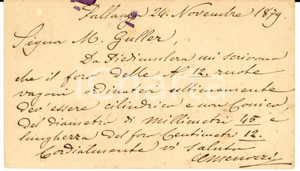 Pallanza 24. Novembre 1879.
Signor M. Guller,
Da Piedimulera mi scrivono
che il foro delle N. 12 ruote
vagoni ordinate ultimamente
dev'essere cilindrico e non Conico,
del diametro di millimetri 45 e
lunghezza del foro Centimetri 12.
Cordialmente vi saluto